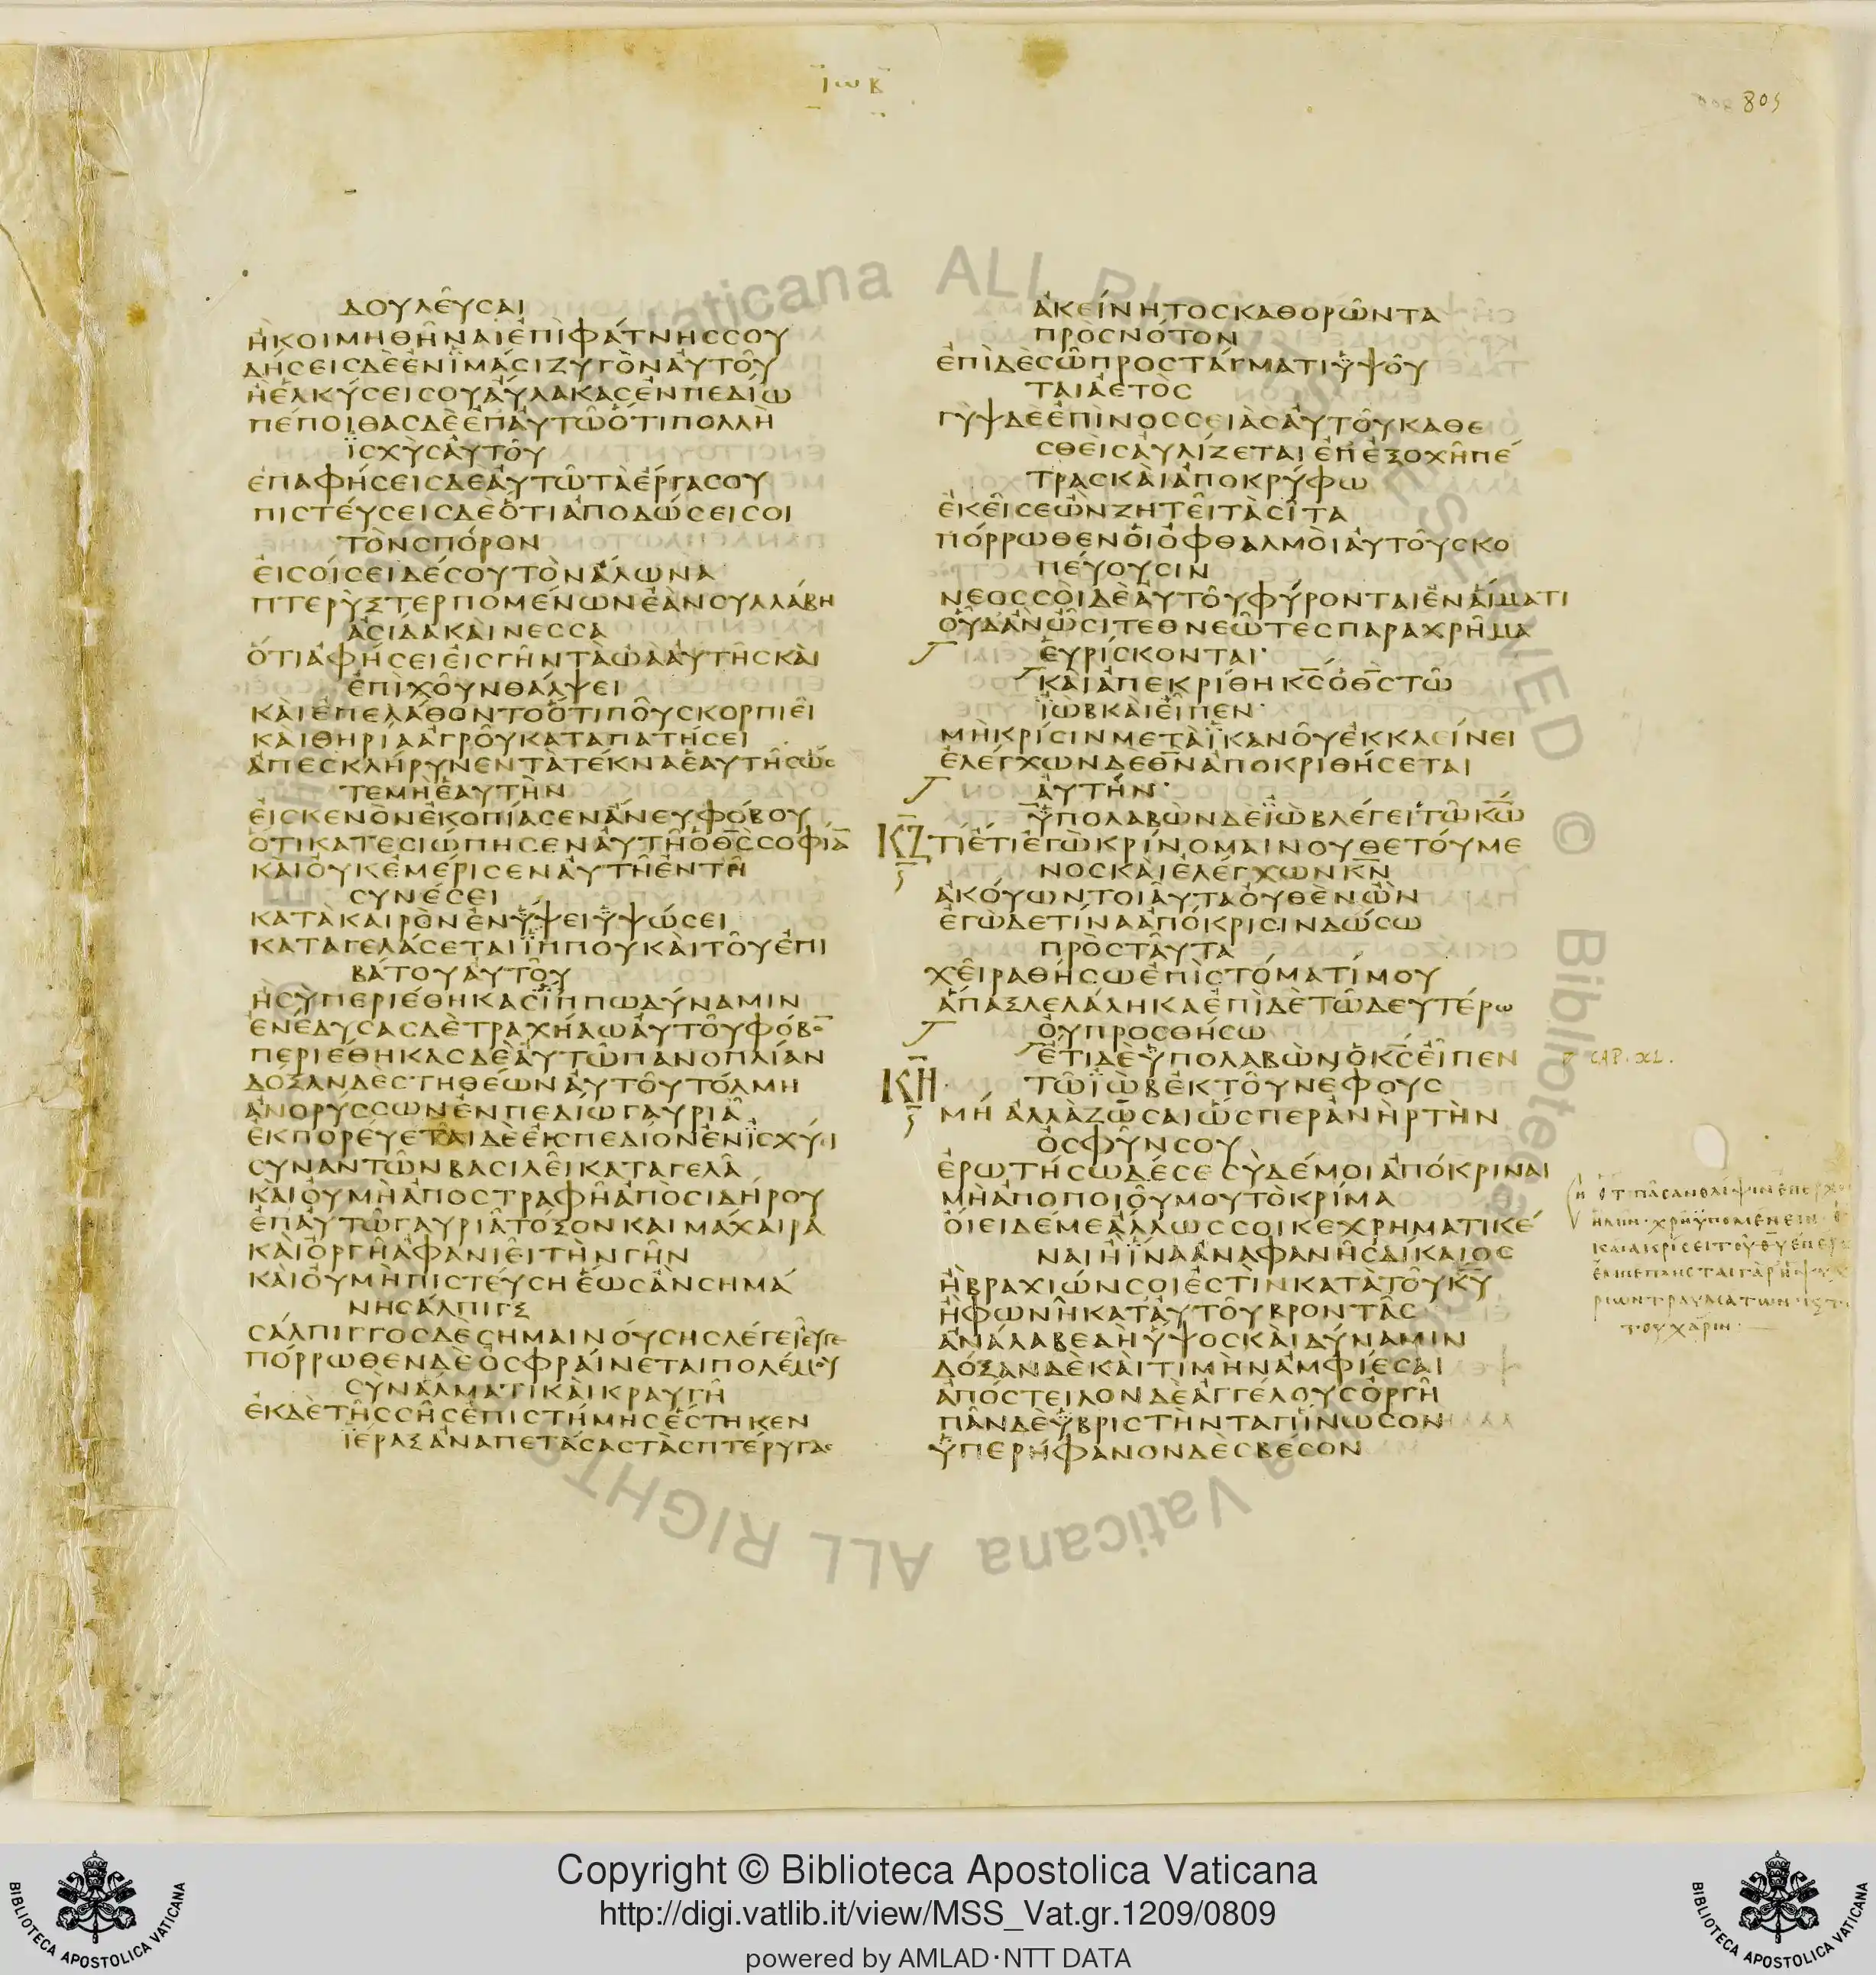 ΙΩΒ
805
ΔΟΥΛΕΥϹΑΙ
ΗΚΟΙΜΗΘΗΝΑΙΕΠΙΦΑΤΝΗϹϹΟΥ
ΔΗϹΕΙϹΔΕΕΝΪΜΑϹΙΖΥΓΟΝΑΥΤΟΥ
ΗΕΛΚΥϹΕΙϹΟΥΑΥΛΑΚΑϹΕΝΠΕΔΙΩ
ΠΕΠΟΙΘΑϹΔΕΕΠΑΥΤΩΟΤΙΠΟΛΛΗ
ΪϹΧΥϹΑΥΤΟΥ
ΕΠΑΦΗϹΕΙϹΔΕΑΥΤΩΤΑΕΡΓΑϹΟΥ
ΠΙϹΤΕΥϹΕΙϹΔΕΟΤΙΑΠΟΔΩϹΕΙϹΟΙ
ΤΟΝϹΠΟΡΟΝ
ΕΙϹΟΙϹΕΙΔΕϹΟΥΤΟΝΑΛΩΝΑ
ΠΤΕΡΥΞΤΕΡΠΟΜΕΝΩΝΕΑΝϹΥΛΛΑΒΗ
ΑϹΙΔΑΚΑΙΝΕϹϹΑ
ΟΤΙΑΦΗϹΕΙΕΙϹΓΗΝΤΑΩΑΑΥΤΗϹΚΑΙ
ΕΠΙΧΟΥΝΘΑΛΨΕΙ
ΚΑΙΕΠΕΛΑΘΟΝΤΟΟΤΙΠΟΥϹΚΟΡΠΙΕΙ
ΚΑΙΘΗΡΙΑΑΓΡΟΥΚΑΤΑΠΑΤΗϹΕΙ
ΑΠΕϹΚΛΗΡΥΝΕΝΤΑΤΕΚΝΑΕΑΥΤΗϹΩϹ
ΤΕΜΗΕΑΥΤΗΝ
ΕΙϹΚΕΝΟΝΕΚΟΠΙΑϹΕΝΑΝΕΥΦΟΒΟΥ
ΟΤΙΚΑΤΕϹΙΩΠΗϹΕΝΑΥΤΗΟΘ̅Ϲ̅ϹΟΦΙΑ̅
ΚΑΙΟΥΚΕΜΕΡΙϹΕΝΑΥΤΗΕΝΤΗ
ϹΥΝΕϹΕΙ
ΚΑΤΑΚΑΙΡΟΝΕΝΫΨΕΙΫΨΩϹΕΙ
ΚΑΤΑΓΕΛΑϹΕΤΑΙΪΠΠΟΥΚΑΙΤΟΥΕΠΙ
ΒΑΤΟΥΑΥΤΟΥ
ΗϹΥΠΕΡΙΕΘΗΚΑϹΪΠΠΩΔΥΝΑΜΙΝ
ΕΝΕΔΥϹΑϹΔΕΤΡΑΧΗΛΩΑΥΤΟΥΦΟΒΟ̅
ΠΕΡΙΕΘΗΚΑϹΔΕΑΥΤΩΠΑΝΟΠΛΙΑΝ
ΔΟΞΑΝΔΕϹΤΗΘΕΩΝΑΥΤΟΥΤΟΛΜΗ
ΑΝΟΡΥϹϹΩΝΕΝΠΕΔΙΩΓΑΥΡΙΑ
ΕΚΠΟΡΕΥΕΤΑΙΔΕΕΙϹΠΕΔΙΟΝΕΝΪϹΧΥΪ
ϹΥΝΑΝΤΩΝΒΑϹΙΛΕΙΚΑΤΑΓΕΛΑ
ΚΑΙΟΥΜΗΑΠΟϹΤΡΑΦΗΑΠΟϹΙΔΗΡΟΥ
ΕΠΑΥΤΩΓΑΥΡΙΑΤΟΞΟΝΚΑΙΜΑΧΑΙΡΑ
ΚΑΙΟΡΓΗΑΦΑΝΙΕΙΤΗΝΓΗΝ
ΚΑΙΟΥΜΗΠΙϹΤΕΥϹΗΕΩϹΑΝϹΗΜΑ
ΝΗϹΑΛΠΙΓΞ
ϹΑΛΠΙΓΓΟϹΔΕϹΗΜΑΙΝΟΥϹΗϹΛΕΓΕΙΕΥΓΕ
ΠΟΡΡΩΘΕΝΔΕΟϹΦΡΑΙΝΕΤΑΙΠΟΛΕΜΟΥ
ϹΥΝΑΛΜΑΤΙΚΑΙΚΡΑΥΓΗ
ΕΚΔΕΤΗϹϹΗϹΕΠΙϹΤΗΜΗϹΕϹΤΗΚΕΝ
ΪΕΡΑΞΑΝΑΠΕΤΑϹΑϹΤΑϹΠΤΕΡΥΓΑϹ
ΑΚΕΙΝΗΤΟϹΚΑΘΟΡΩΝΤΑ
ΠΡΟϹΝΟΤΟΝ
ΕΠΙΔΕϹΩΠΡΟϹΤΑΓΜΑΤΙΫΨΟΥ
ΤΑΙΑΕΤΟϹ
ΓΥΨΔΕΕΠΙΝΟϹϹΕΙΑϹΑΥΤΟΥΚΑΘΕ
ϹΘΕΙϹΑΥΛΙΖΕΤΑΙΕΠΕΞΟΧΗΠΕ
ΤΡΑϹΚΑΙΑΠΟΚΡΥΦΩ
ΕΚΕΙϹΕΩΝΖΗΤΕΙΤΑϹΙΤΑ
ΠΟΡΡΩΘΕΝΟΙΟΦΘΑΛΜΟΙΑΥΤΟΥϹΚΟ
ΠΕΥΟΥϹΙΝ
ΝΕΟϹϹΟΙΔΕΑΥΤΟΥΦΥΡΟΝΤΑΙΕΝΑΙΜΑΤΙ
ΟΥΔΑΝΩϹΙΤΕΘΝΕΩΤΕϹΠΑΡΑΧΡΗΜΑ
ΕΥΡΙϹΚΟΝΤΑΙ·
ΚΑΙΑΠΕΚΡΙΘΗΚ̅Ϲ̅ΟΘ̅Ϲ̅ΤΩ
ΪΩΒΚΑΙΕΙΠΕΝ·
ΜΗΚΡΙϹΙΝΜΕΤΑΪΚΑΝΟΥΕΚΚΛΕΙΝΕΙ
ΕΛΕΓΧΩΝΔΕΘ̅Ν̅ΑΠΟΚΡΙΘΗϹΕΤΑΙ
ΑΥΤΗΝ·
ΫΠΟΛΑΒΩΝΔΕΪΩΒΛΕΓΕΙΤΩΚ̅Ω̅
ΚΖ ΤΙΕΤΙΕΓΩΚΡΙΝΟΜΑΙΝΟΥΘΕΤΟΥΜΕ
ΝΟϹΚΑΙΕΛΕΓΧΩΝΚ̅Ν̅
ΑΚΟΥΩΝΤΟΙΑΥΤΑΟΥΘΕΝΩΝ
ΕΓΩΔΕΤΙΝΑΑΠΟΚΡΙϹΙΝΔΩϹΩ
ΠΡΟϹΤΑΥΤΑ
ΧΕΙΡΑΘΗϹΩΕΠΙϹΤΟΜΑΤΙΜΟΥ
ΑΠΑΞΛΕΛΑΛΗΚΑΕΠΙΔΕΤΩΔΕΥΤΕΡΩ
ΟΥΠΡΟϹΘΗϹΩ
ΕΤΙΔΕΫΠΟΛΑΒΩΝΟΚ̅Ϲ̅ΕΙΠΕΝ
CAP. XL.
ΚΗ ΤΩΪΩΒΕΚΤΟΥΝΕΦΟΥϹ
ΜΗ ΑΛΛΑΖΩϹΑΙΩϹΠΕΡΑΝΗΡΤΗΝ
ΟϹΦΥΝϹΟΥ
ΕΡΩΤΗϹΩΔΕϹΕϹΥΔΕΜΟΙΑΠΟΚΡΙΝΑΙ
ΜΗΑΠΟΠΟΙΟΥΜΟΥΤΟΚΡΙΜΑ
ΟΙΕΙΔΕΜΕΑΛΛΩϹϹΟΙΚΕΧΡΗΜΑΤΙΚΕ
ΝΑΙΗΪΝΑΑΝΑΦΑΝΗϹΔΙΚΑΙΟϹ
ΗΒΡΑΧΙΩΝϹΟΙΕϹΤΙΝΚΑΤΑΤΟΥΚ̅Υ̅
ΗΦΩΝΗΚΑΤΑΥΤΟΥΒΡΟΝΤΑϹ
ΑΝΑΛΑΒΕΔΗΫΨΟϹΚΑΙΔΥΝΑΜΙΝ
ΔΟΞΑΝΔΕΚΑΙΤΙΜΗΝΑΜΦΙΕϹΑΙ
ΑΠΟϹΤΕΙΛΟΝΔΕΑΓΓΕΛΟΥϹΟΡΓΗ
ΠΑΝΔΕΫΒΡΙϹΤΗΝΤΑΠΙΝΩϹΟΝ
ΫΠΕΡΗΦΑΝΟΝΔΕϹΒΕϹΟΝ
Copyright © Biblioteca Apostolica Vaticana
http://digi.vatlib.it/view/MSS_Vat.gr.1209/0809
powered by AMLAD·NTT DATA
BIBLIOTECA APOSTOLICA VATICANA
BIBLIOTECA APOSTOLICA VATICANA